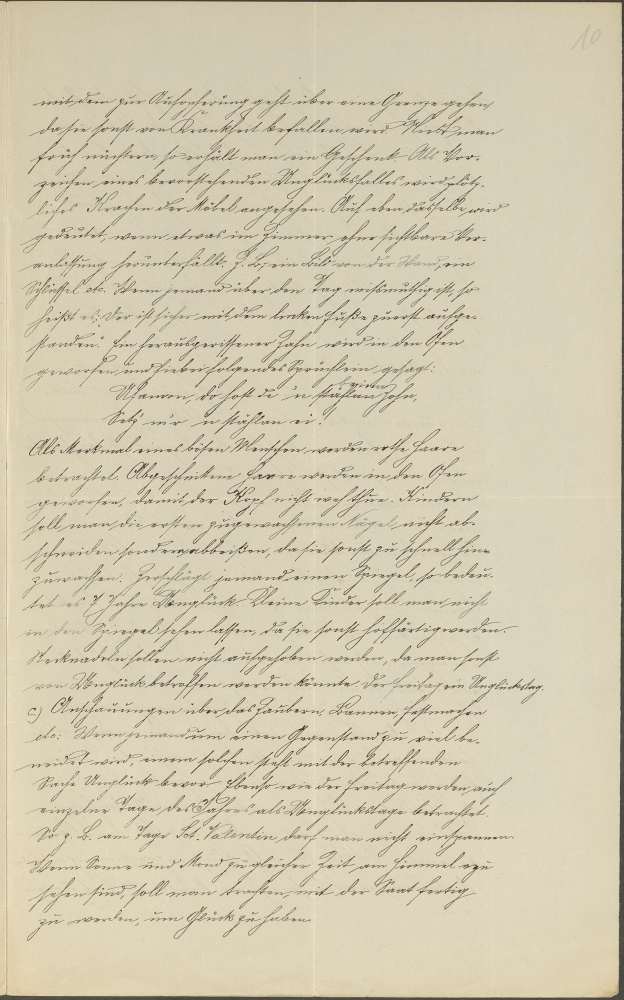 10
mit dem zur Aufopferung geht über eine Grenze gehen,
da sie sonst von Krankheit befallen wird. Niest man
früh nüchtern, so erhält man ein Geschenk. Als Vor-
zeichen eines bevorstehenden Unglücksfalles wird plötz-
liches Krachen der Möbel angesehen. Auf eben dasselbe wird
gedeutet, wenn etwas im Zimmer ohne sichtbare Ver-
anlassung herunterfällt. z. B. ein Bild von der Wand, ein
Schlüssel etc. Wenn jemand über den Tag mißmuthig ist, so
heißt es: „Der ist sicher mit dem linken Fuße zuerst aufge-
standen." Ein herausgerissener Zahn wird in den Ofen
geworfen und hierbei folgendes Sprüchlein gesagt:
do host de 'n Zohn,
mir 'n stählan ei!
Als Merkmal eines bösen Menschen werden rothe Haare
betrachtet. Abgeschnittene Haare werden in den Ofen
geworfen, damit der Kopf nicht weh thue. Kindern
soll man die ersten zugewachsenen Nägel nicht ab-
schneiden sondern abbeißen, da sie sonst zu schnell hine-
zuwachsen. Zerschlägt jemand einen Spiegel, so bedeu-
tet es 7 Jahre Unglück. Kleine Kinder soll man nicht
in den Spiegel sehen lassen, da sie sonst hoffärtig werden.
Stecknadeln sollen nicht aufgehoben werden, da man sonst
von Unglück betroffen werden könnte. Der Freitag ein Unglückstag.
c) Anschauungen über das Zaubern, Bannen, Festmachen
etc: Wenn jemand um einen Gegenstand zu viel be-
neidet wird, einem solchen steht mit der betreffenden
Sache Unglück bevor. Ebenso wie der Freitag werden auch
einzelne Tage des Jahres als Unglückstage betrachtet.
So z. B. am Tage Sct. Valentin darf man nicht einspannen.
Wenn Sonne und Mond zu gleicher Zeit am Himmel zu
sehen sind, soll man trachten, mit der Saat fertig
zu werden, um Glück zu haben.